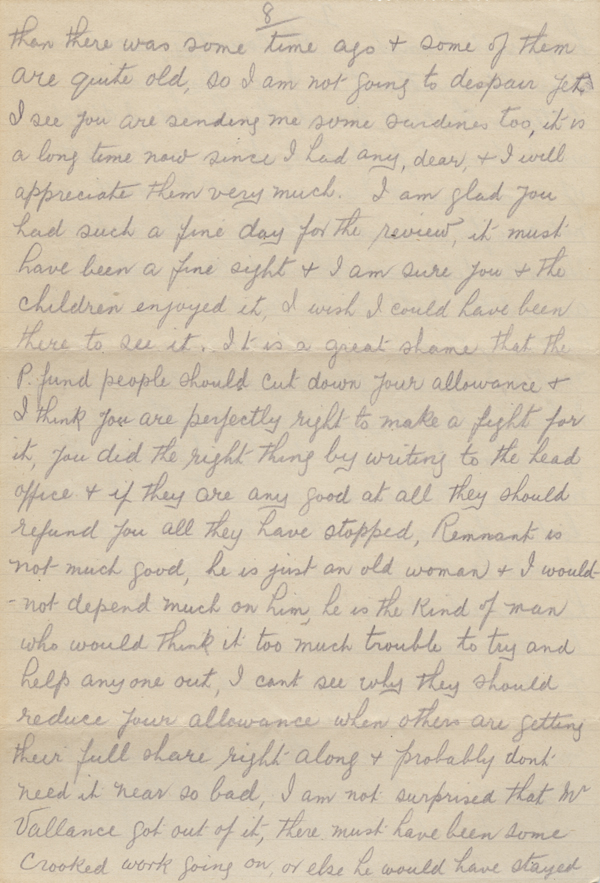 8
than there was some time ago + some of them
are quite old, so I am not going to despair yet.
I see you are sending me some sardines too, it is
a long time now since I had any, dear, + I will
appreciate them very much. I am glad you
had such a fine day for the review, it must
have been a fine sight + I am sure you + the
children enjoyed it, I wish I could have been
there to see it. It is a great shame that the
P. fund people should cut down your allowance +
I think you are perfectly right to make a fight for
it, you did the right thing by writing to the head
office + if they are any good at all they should
refund you all they have stopped, Remnant is
not much good, he is just an old woman + I would-
-not depend much on him, he is the kind of man
who would think it too much trouble to try and
help anyone out, I cant see why they should
reduce your allowance when others are getting
their full share right along + probably dont
need it near so bad, I am not surprised that Mr
Vallance got out of it, there must have been some
crooked work going on, or else he would have stayed